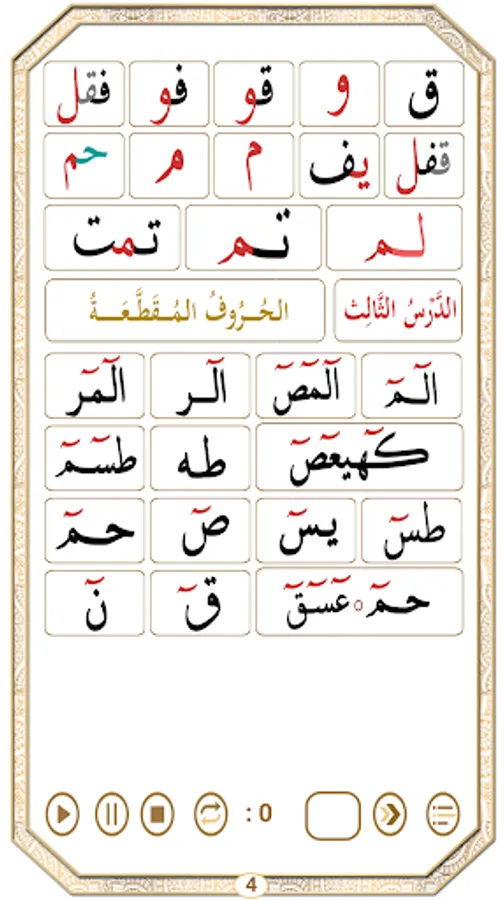 ق و قو فو فقل
قفل يف م م حم
لم تم تمت
الدَّرْسُ الثَّالِث الحُرُوفُ المُقَطَّعَةُ
الٓمٓ الٓمٓصٓ الٓر الٓمٓر
كٓهيعٓصٓ طه طسٓمٓ
طسٓ يسٓ صٓ حمٓ
حمٓ ۝ عٓسٓقٓ قٓ نٓ
: 0
4